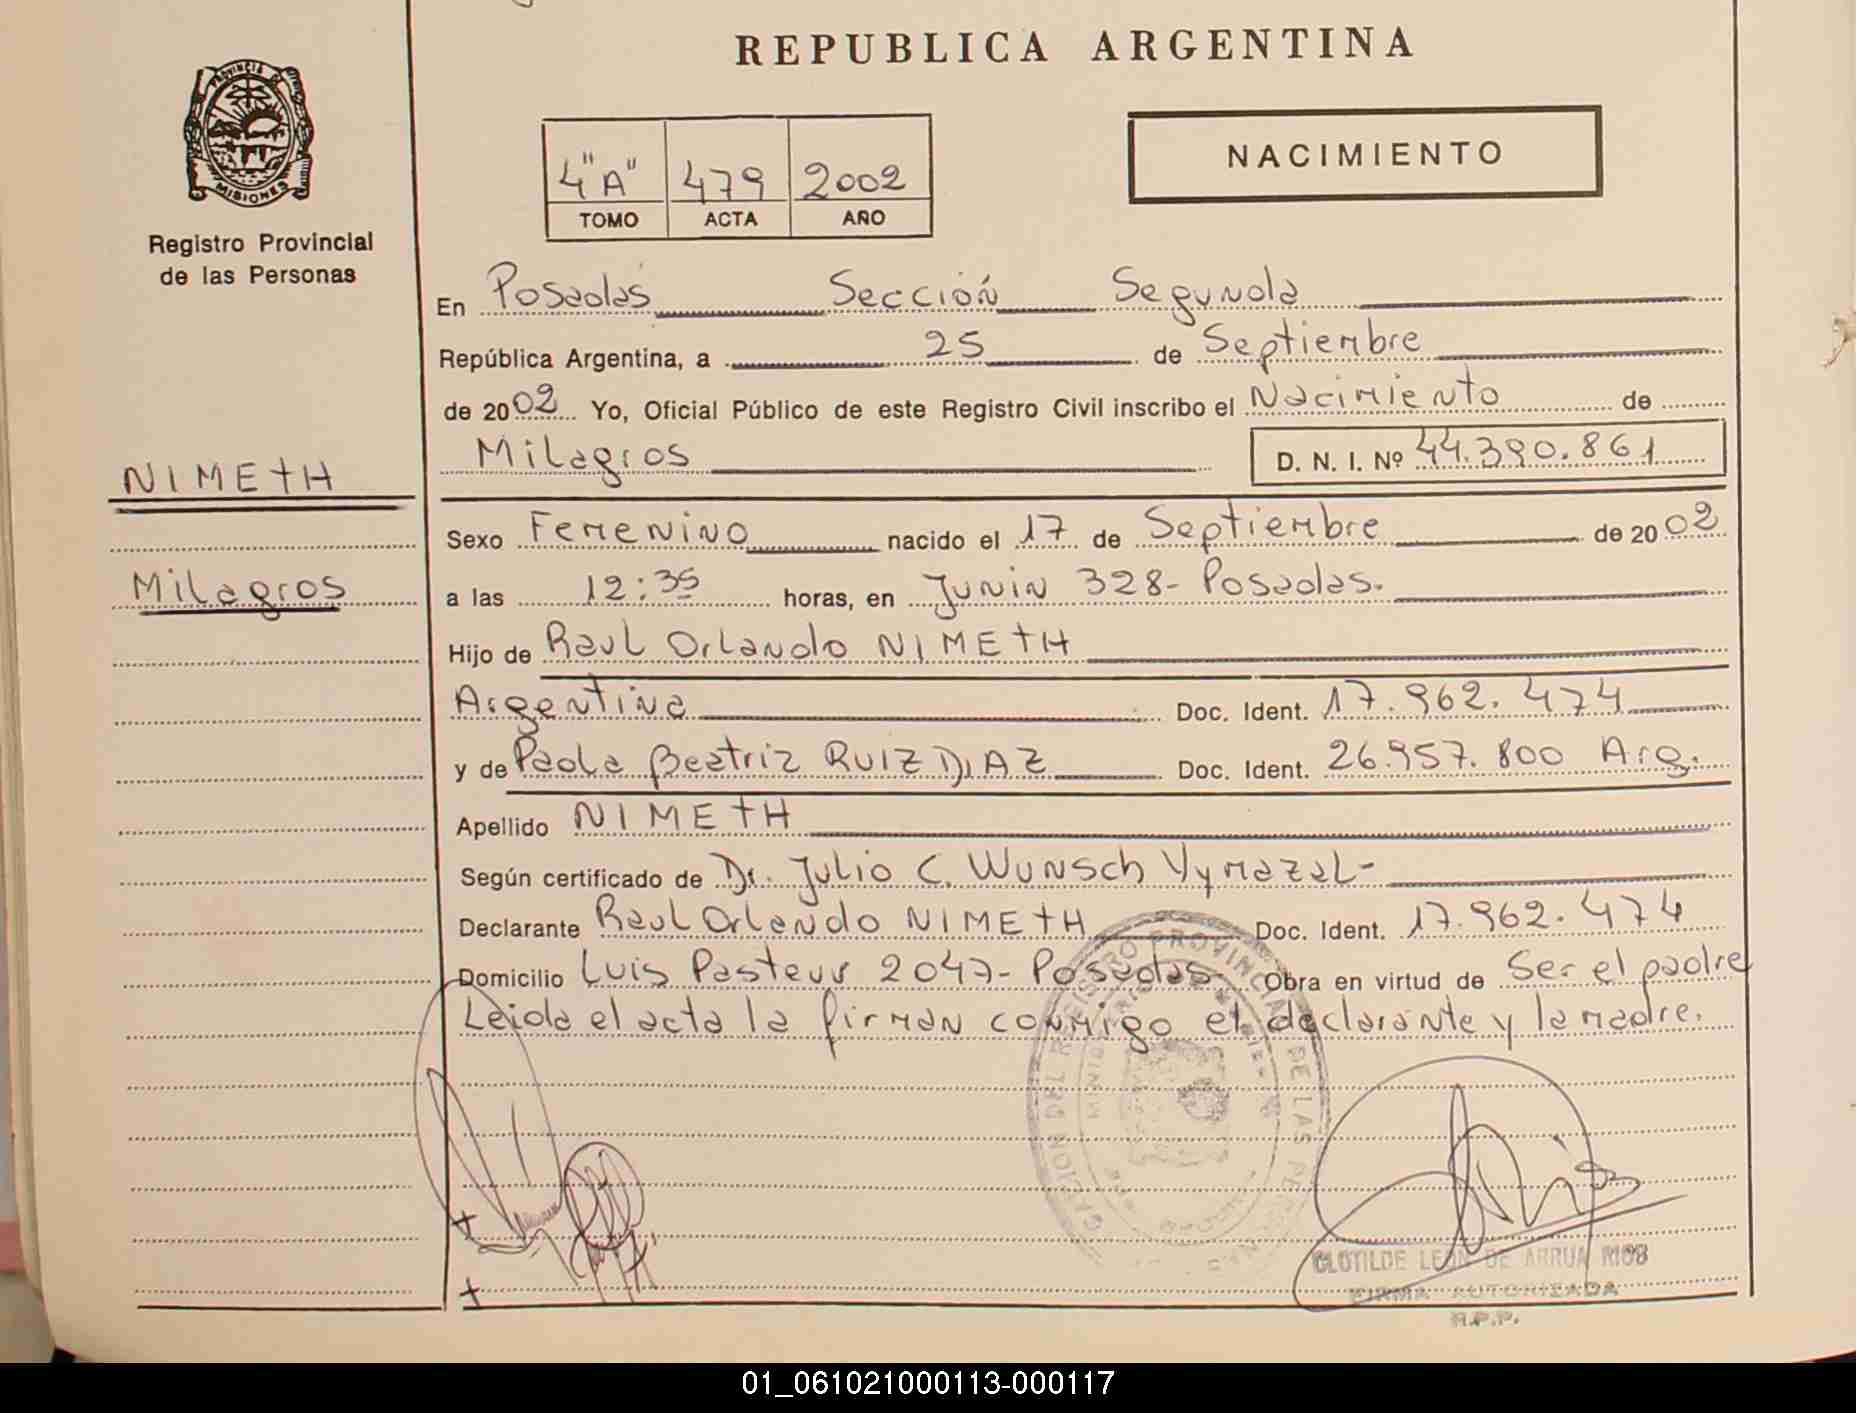 REPUBLICA ARGENTINA
PROVINCIA DE
MISIONES
Registro Provincial
de las Personas
4"A" 479 2002
TOMO ACTA AÑO
NACIMIENTO
En Posadas Sección Segunda
República Argentina, a 25 de Septiembre
de 2002 Yo, Oficial Público de este Registro Civil inscribo el Nacimiento de
Milagros D. N. I. Nº 44.390.861
NIMETH
Milagros
Sexo Femenino nacido el 17 de Septiembre de 2002
a las 12:35 horas, en Junin 328- Posadas.
Hijo de Raul Orlando NIMETH
Argentina Doc. Ident. 17.962.474
y de Paola Beatriz RUIZ DIAZ Doc. Ident. 26.957.800 Arg.
Apellido NIMETH
Según certificado de Dr. Julio C. Wunsch Vymazal-
Declarante Raul Orlando NIMETH Doc. Ident. 17.962.474
Domicilio Luis Pasteur 2047- Posadas Obra en virtud de Ser el padre
Leida el acta la firman conmigo el declarante y la madre.
DEL REGISTRO PROVINCIAL DE LAS
CLOTILDE LEON DE ARRUA RIOS
FIRMA AUTORIZADA
R.P.P.
01_061021000113-000117